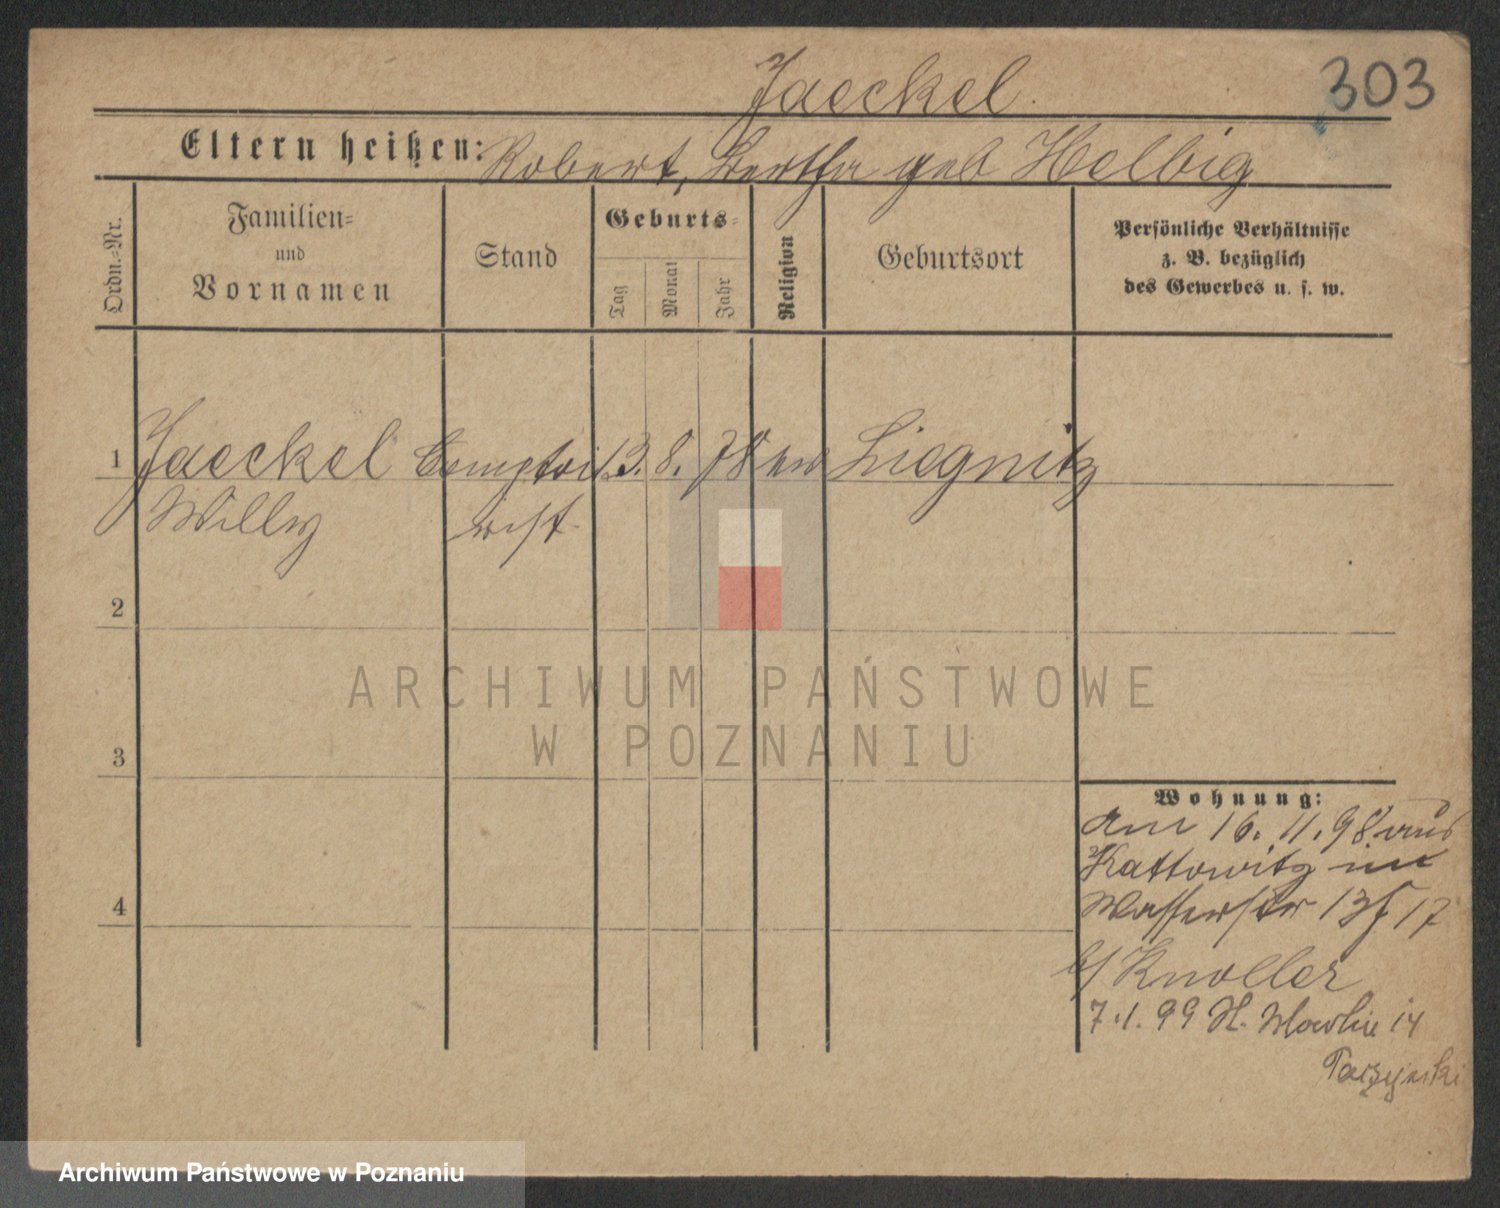 Jaeckel 303
Eltern heißen: Robert, Bertha geb Helbig
Ordn.-Nr.
Familien- und Vornamen
Stand
Geburts-
Tag
Monat
Jahr
Religion
Geburtsort
Persönliche Verhältnisse
z. B. bezüglich
des Gewerbes u. s. w.
1 Jaeckel Comptoi 13. 8. 78 ev Liegnitz
Willy rist
2
ARCHIWUM PAŃSTWOWE
W POZNANIU
3
Wohnung:
am 16. 11. 98 aus
Kattowitz in
4
Wasserstr 17
b/ Knoller
7.1.99 St. 14
Archiwum Państwowe w Poznaniu